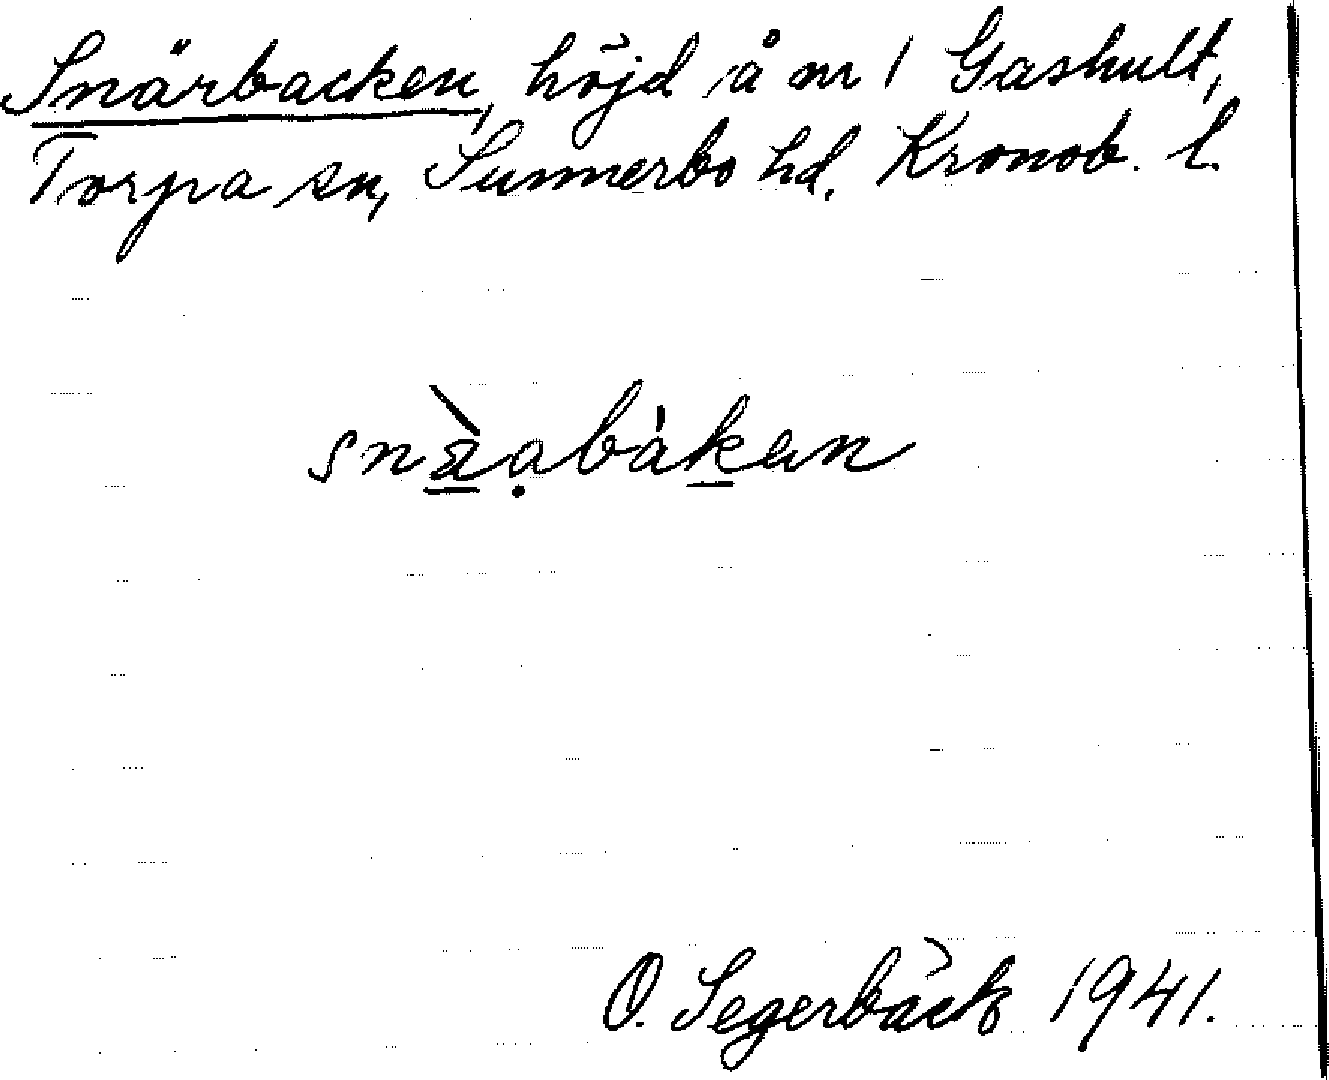 Snärbacken, höjd å nr 1 Gashult,
Torpa sn, Sunnerbo hd. Kronob. l.
O. Segerbäck 1941.